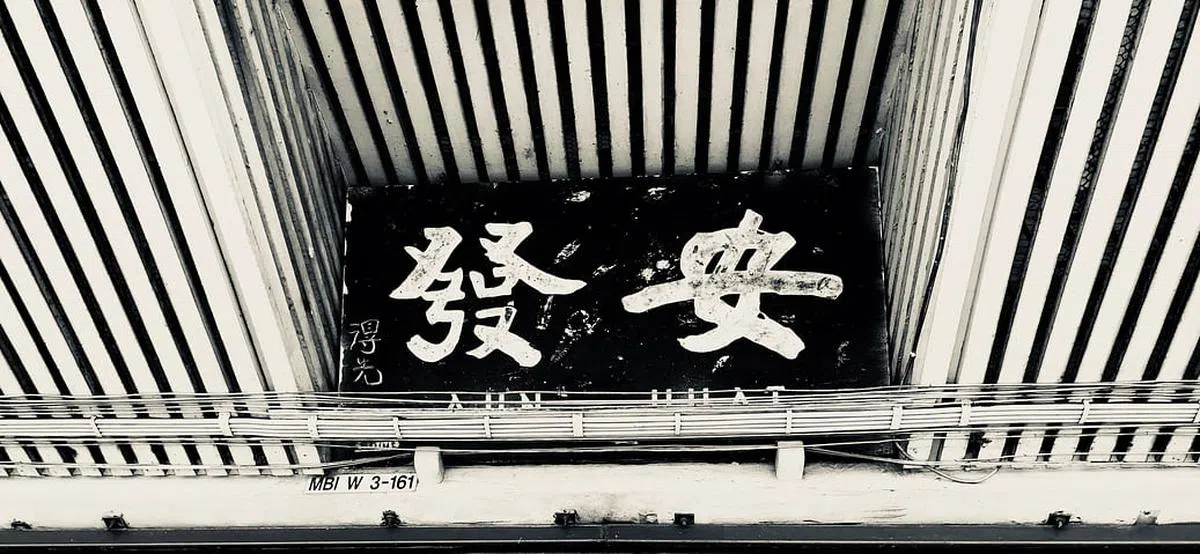 安發
AUN HUAT
MBI W 3-161